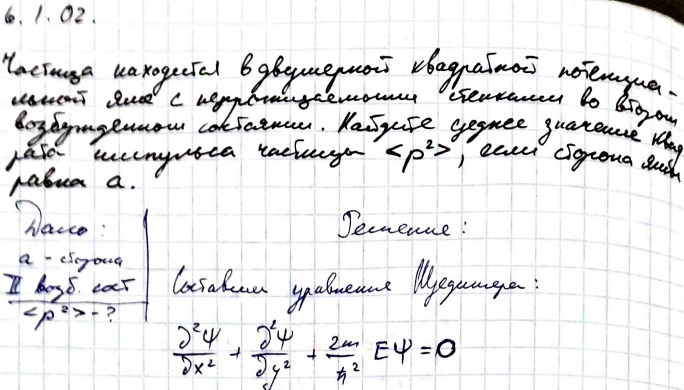 6.1.02.
Частица находится в двумерной квадратной потенциа-
льной яме с непроницаемыми стенками во втором
возбужденном состоянии. Найдите среднее значение квад
рата импульса частицы <p²>, если сторона ямы
равна a.
Дано:
a - сторона
II возб. сост
<p²> - ?
Решение:
Составим уравнение Шредингера:
∂²Ψ/∂x² + ∂²Ψ/∂y² + 2m/ħ² EΨ = 0